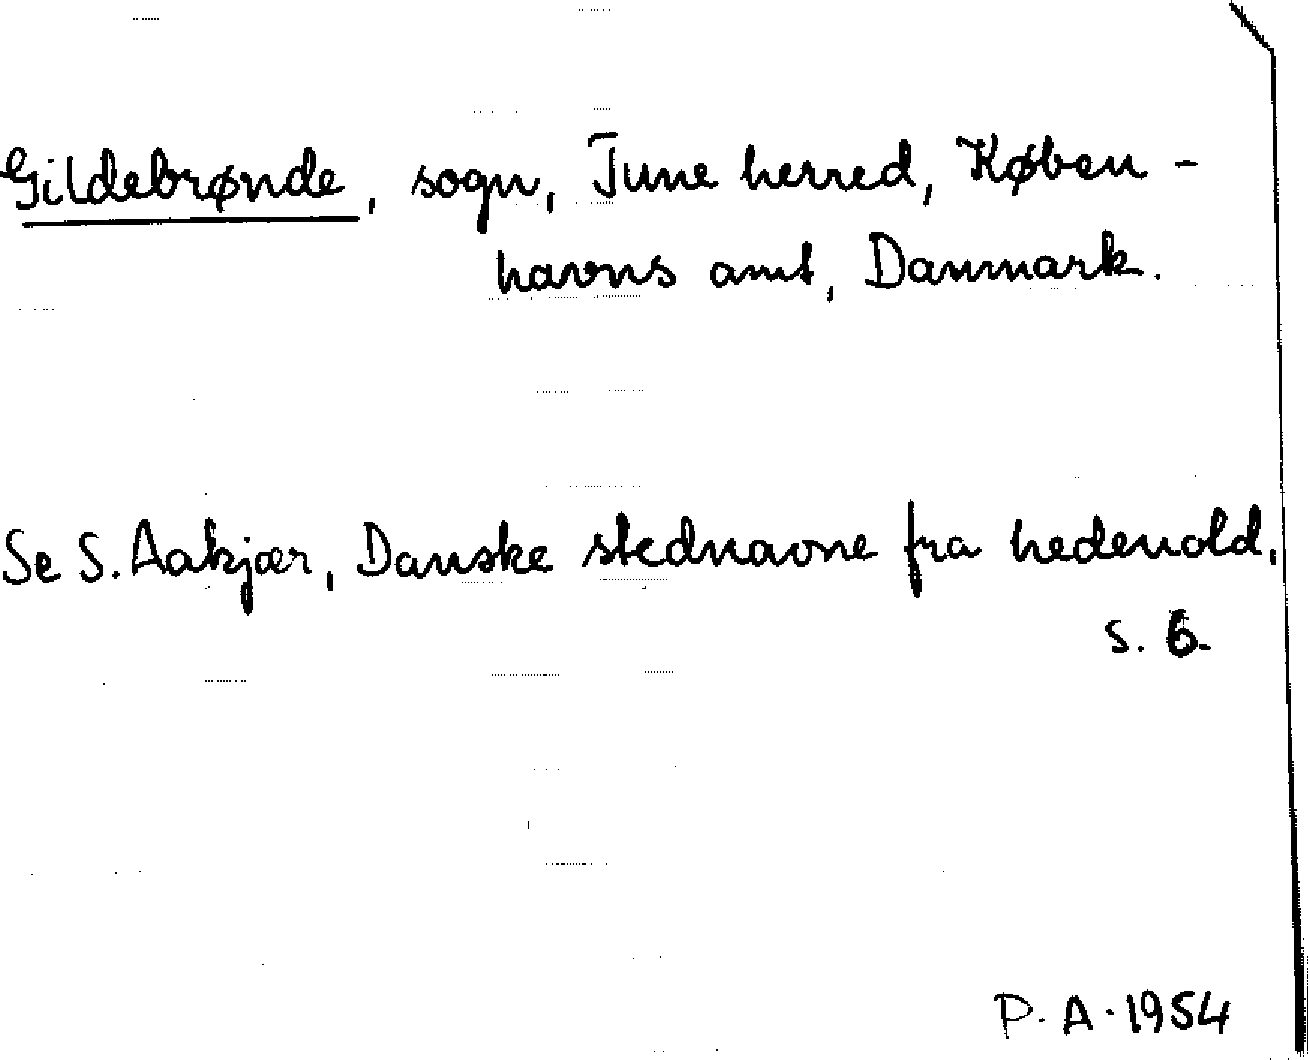 Gildebrønde, sogn, Tune herred, Køben-
havns amt, Danmark.
Se S. Aakjær, Danske stednavne fra hedenold,
s. 6.
P. A. 1954